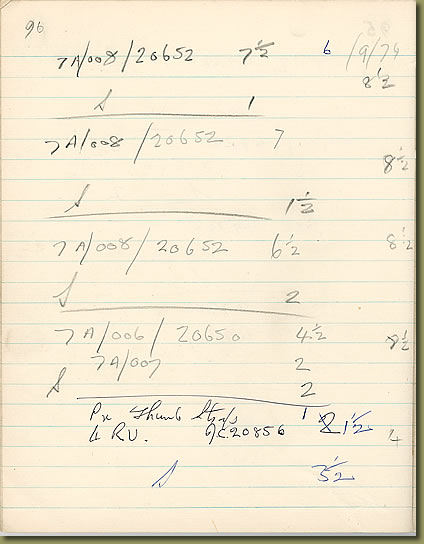 96
7A/008/20652 7½ 6 /9/74
8½
S 1
7A/008/20652 7
8½
S 1½
7A/008/20652 6½ 8½
S 2
7A/006/20650 4½ 8½
7A/007 2
S 2
Px Thumb 1 1½
4 RU. 20856 4
S 3½